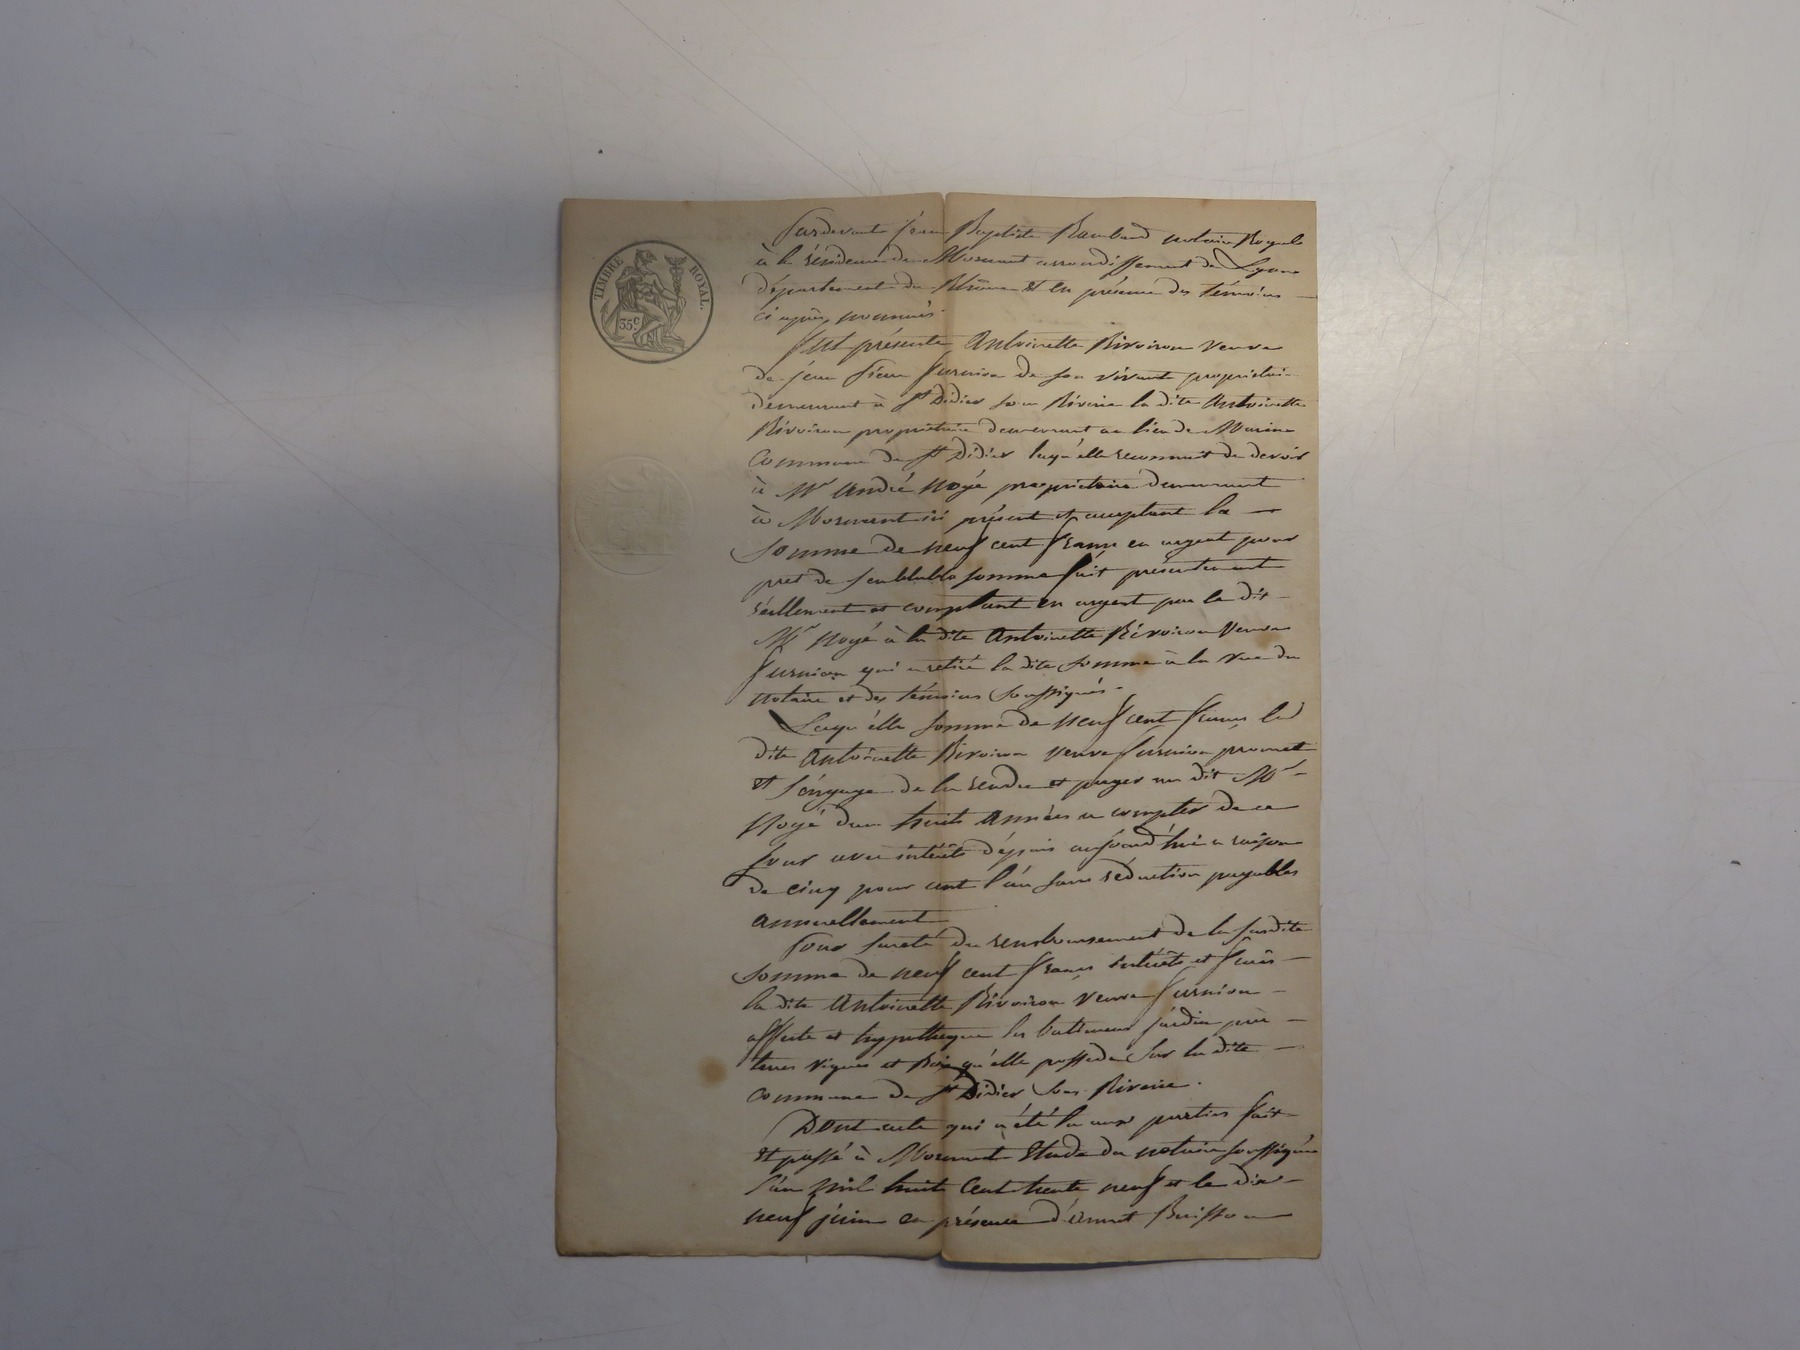 TIMBRE ROYAL.
35c
Pardevant jean Baptiste Rambaud notaire Royale
à la résidence de Mornant arrondissement de Lyon
département du Rhône et en présence des témoins
ci après nommés.
fut présente Antoinette Rivoiron veuve
de jean Furnion de son vivant propriétai-
demeurant à St Didier sou Riverie la dite Antoinette
Rivoiron propriétaire demeurant au lieu de
Commune de St Didier laqu'elle reconnait de devoir
à Mr André Noyé propriétaire demeurant
à Mornant ici présent et acceptant la
somme de neuf cent francs en argent pour
pret de semblable somme fait présentement
réellement et comptant en argent par le dit
Mr Noyé à la dite Antoinette Rivoiron veuve
furnion qui a retiré la dite somme à la vue du
notaire et des témoins soussignés.
Laqu'elle somme de neuf cent francs la
dite Antoinette Rivoiron veuve furnion promet
et s'engage de la rendre et payer au dit Mr
Noyé dans huit années a compter de ce
jour avec intérêts dépuis aujourd'hui a raison
de cinq pour cent l'an sans réduction payables
annuellement
Pour sureté du remboursement de la susdite
somme de neuf cent francs intérêts et frais
la dite Antoinette Rivoiron veuve furnion
affecte et hypothèque les batiments jardin prés
terres vignes et Bois qu'elle possede sur la dite
commune de St Didier sous Riverie.
Dont acte qui a été lu aux parties fait
et passé à Mornant Etude du notaire soussigné
l'an mil huit cent trente neuf et le dix-
neuf juin en présence d'Annet Buisson